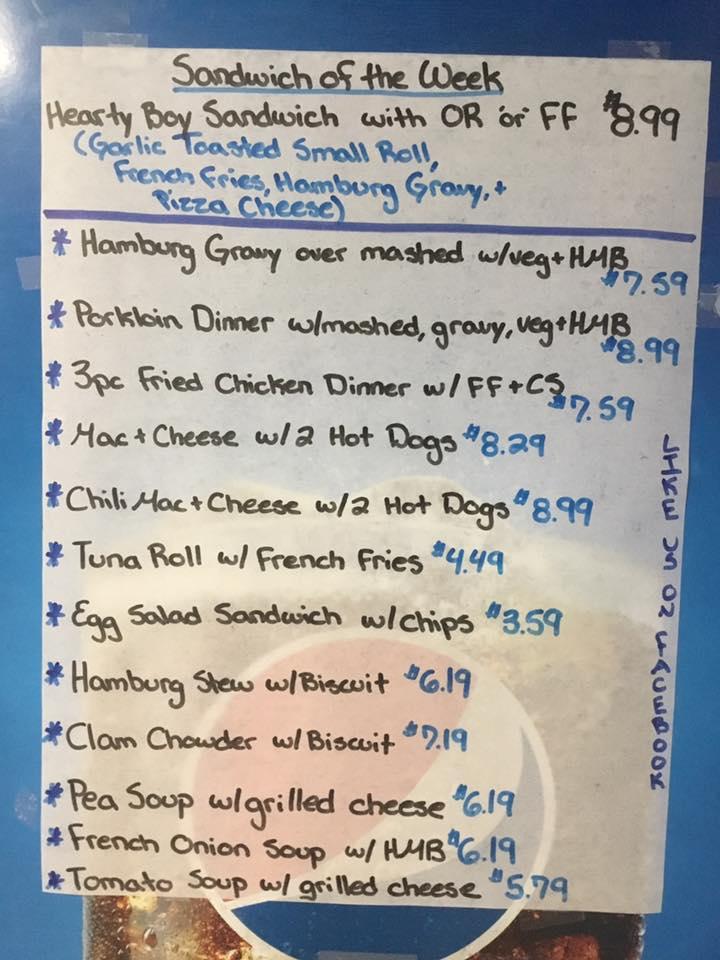 Sandwich of the Week
Hearty Boy Sandwich with OR or FF $8.99
(Garlic Toasted Small Roll,
French Fries, Hamburg Gravy, +
Pizza Cheese)
* Hamburg Gravy over mashed w/veg + HMB
$7.59
* Porkloin Dinner w/mashed, gravy, veg + HMB
$8.99
* 3pc Fried Chicken Dinner w/ FF + CS
$7.59
* Mac + Cheese w/ 2 Hot Dogs $8.29
* Chili Mac + Cheese w/2 Hot Dogs $8.99
* Tuna Roll w/ French Fries $4.49
* Egg Salad Sandwich w/chips $3.59
* Hamburg Stew w/Biscuit $6.19
* Clam Chowder w/Biscuit $7.19
* Pea Soup w/grilled cheese $6.19
* French Onion Soup w/ HMB $6.19
* Tomato Soup w/ grilled cheese $5.79
LIKE US ON FACEBOOK